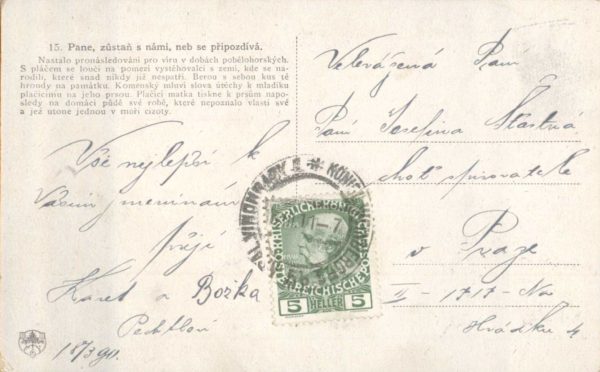 15. Pane, zůstaň s námi, neb se připozdívá.
Nastalo pronásledování pro víru v dobách pobělohorských.
S pláčem se loučí na pomezí vystěhovalci s zemí, kde se na-
rodili, které snad nikdy již nespatří. Berou s sebou kus té
hroudy na památku. Komenský mluví slova útěchy k mladíku
plačícímu na jeho prsou. Plačící matka tiskne k prsům napo-
sledy na domácí půdě své robě, které nepoznalo vlasti své
a jež utone jednou v moři cizoty.
Vše nejlepší k
Vašim jmeninám
přejí
Karel a Božka
Pechtlovi
18/3
Velevážená Paní
Paní Josefina Šťastná
choť spisovatele
v Praze
II - 1717 - Na
Hrádku 4
KRÁL. VINOHRADY
KÖNIGL. WEINBERGE
KAISERL. KÖNIGL. ÖSTERREICHISCHE POST
5 HELLER 5